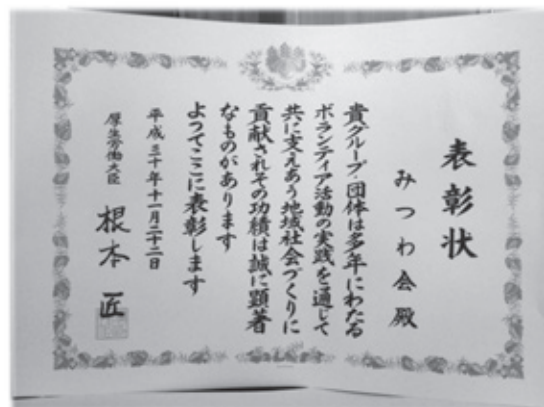 表彰状
みつわ会殿
貴グループ・団体は多年にわたる
ボランティア活動の実践を通じて
共に支えあう地域社会づくりに
貢献されその功績は誠に顕著
なものがあります
よってここに表彰します
平成三十年十一月二十二日
厚生労働大臣
根本匠